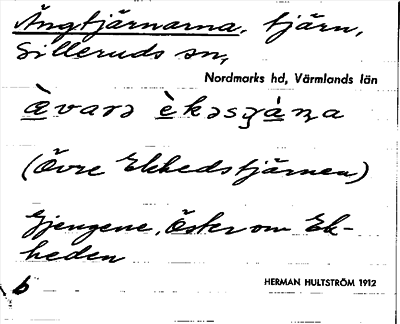 Ängtjärnarna, tjärn,
Silleruds sn,
Nordmarks hd, Värmlands län
(Övre Ekhedstjärnen)
Gjengene, öster om Ek-
heden
b
HERMAN HULTSTRÖM 1912